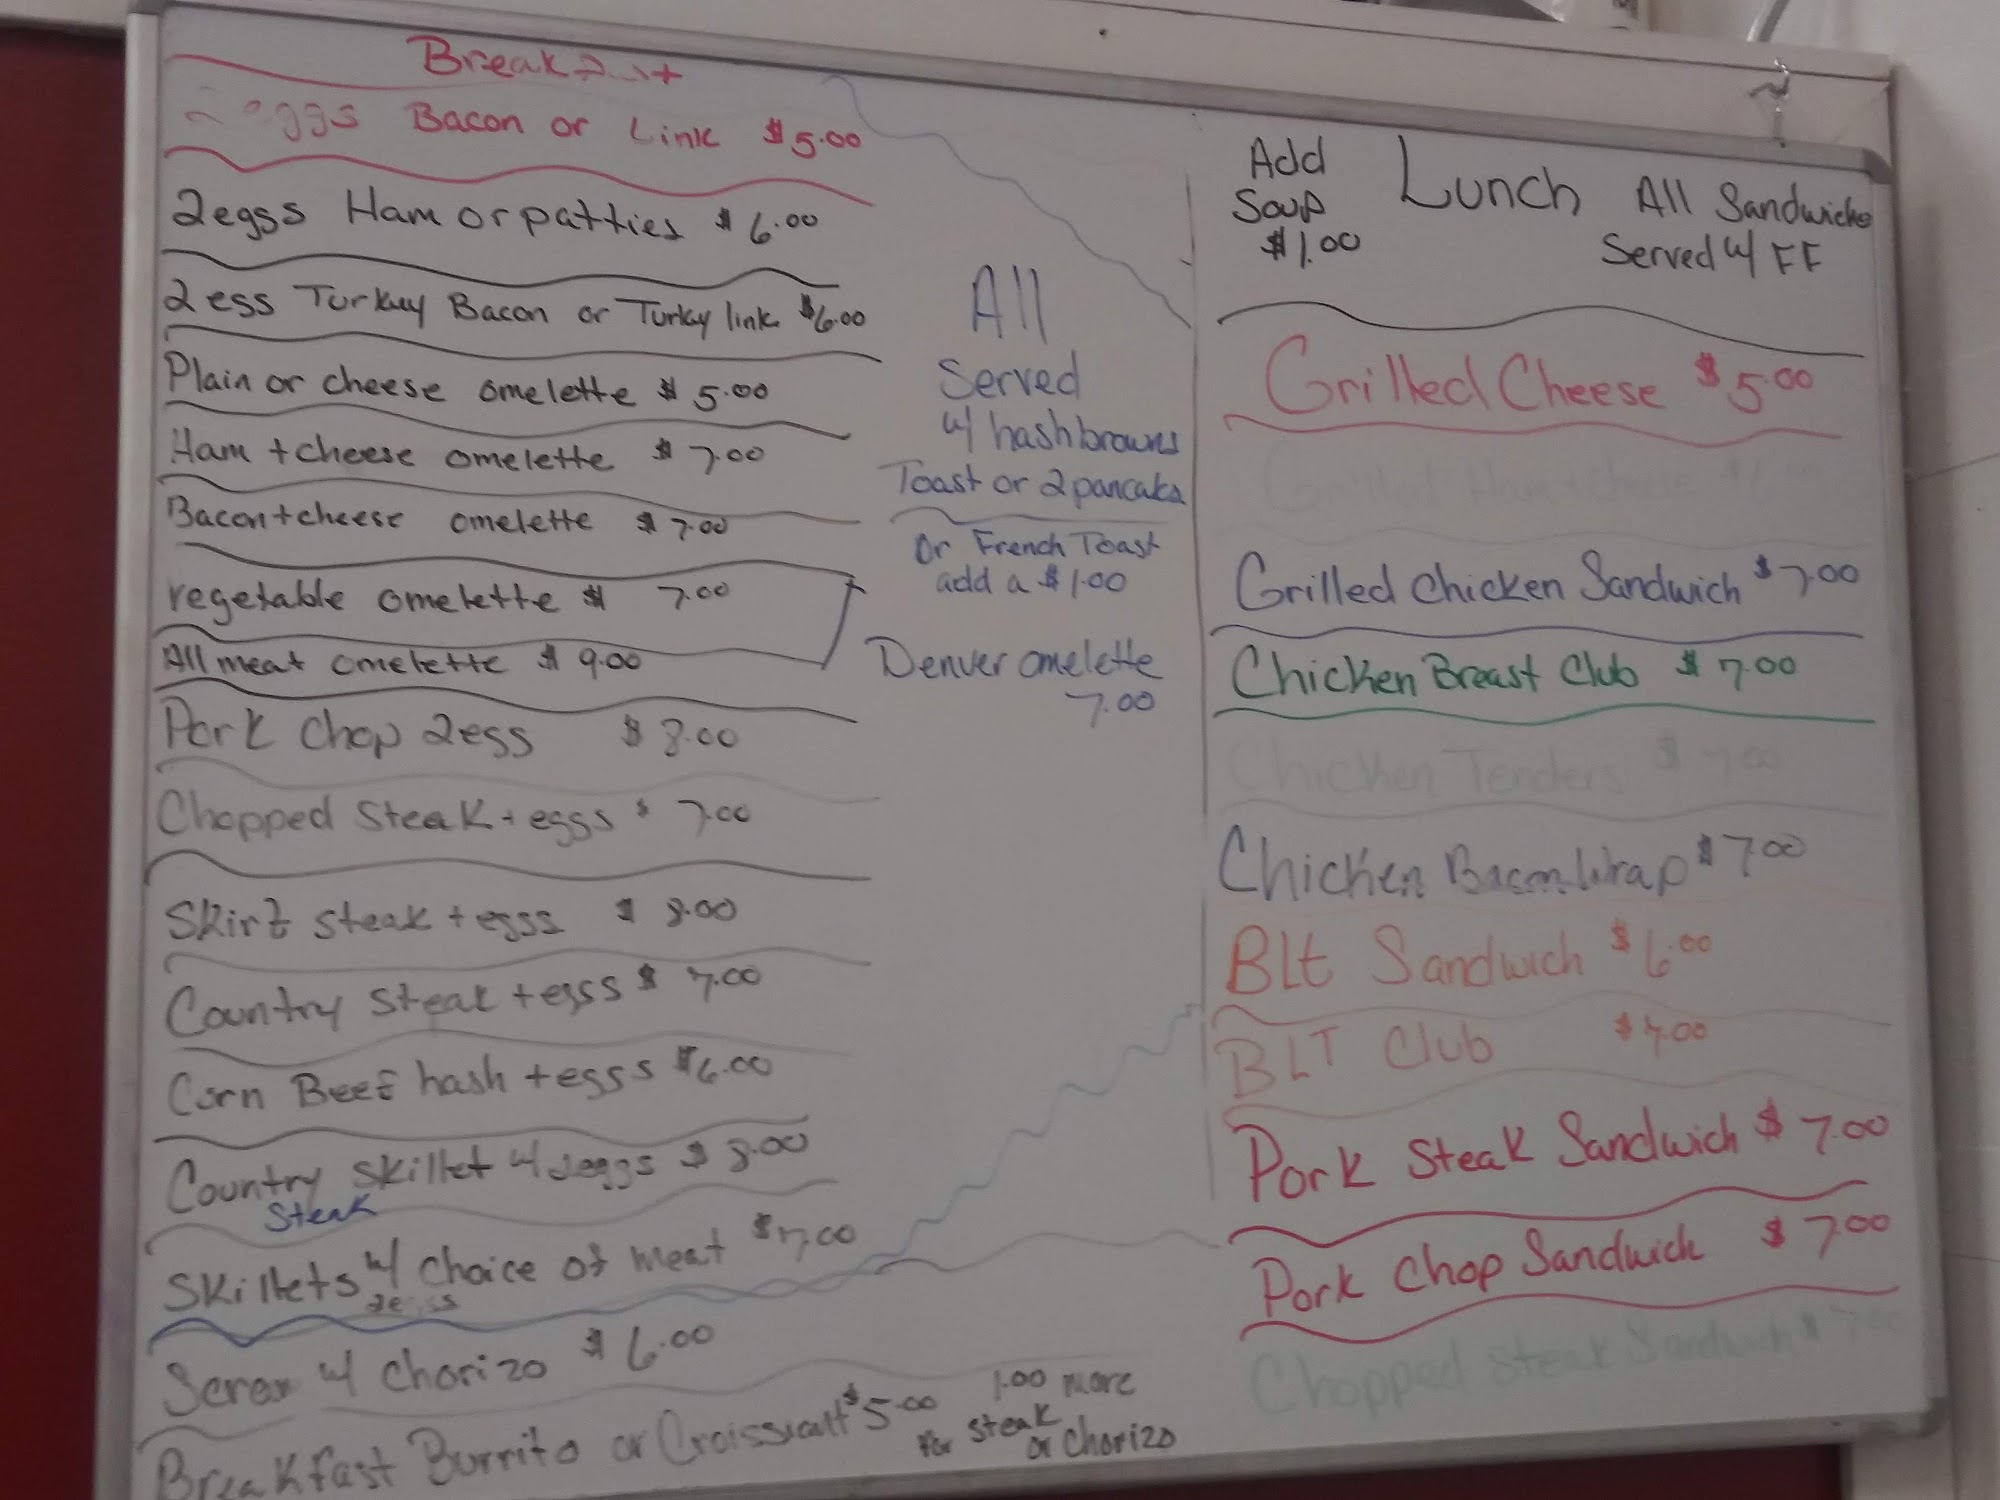 Breakfast
2 eggs Bacon or Link $5.00
2egss Ham or patties $6.00
2ess Turkuy Bacon or Turky link $6.00
Plain or cheese omelette $5.00
Ham + cheese omelette $7.00
Bacon + cheese omelette $7.00
vegetable omelette $ 7.00
All meat omelette $9.00
Pork Chop 2ess $8.00
Chopped Steak + eggs $7.00
Skirt steak + egss $8.00
Country Steak + egss $7.00
Corn Beef hash + egss $6.00
Country Skillet w/ 2eggs $8.00
Steak
Skillets w/ choice of meat $7.00
Scram w/ chorizo $6.00
Breakfast Burrito or $5.00
1.00 more
for steak
or chorizo
All
Served
w/ hashbrowns
Toast or 2 pancaks
Or French Toast
add a $1.00
Denver omelette
7.00
Add
Soup
$1.00
Lunch
All Sandwichs
Served w/ FF
Grilled Cheese $5.00
Grilled Ham + cheese
Grilled Chicken Sandwich $7.00
Chicken Breast Club $7.00
Chicken Tenders $7.00
Chicken Bacon Wrap $7.00
BLt Sandwich $6.00
BLT Club $7.00
Pork Steak Sandwich $7.00
Pork Chop Sandwich $7.00
Chopped Steak Sandwich $7.00